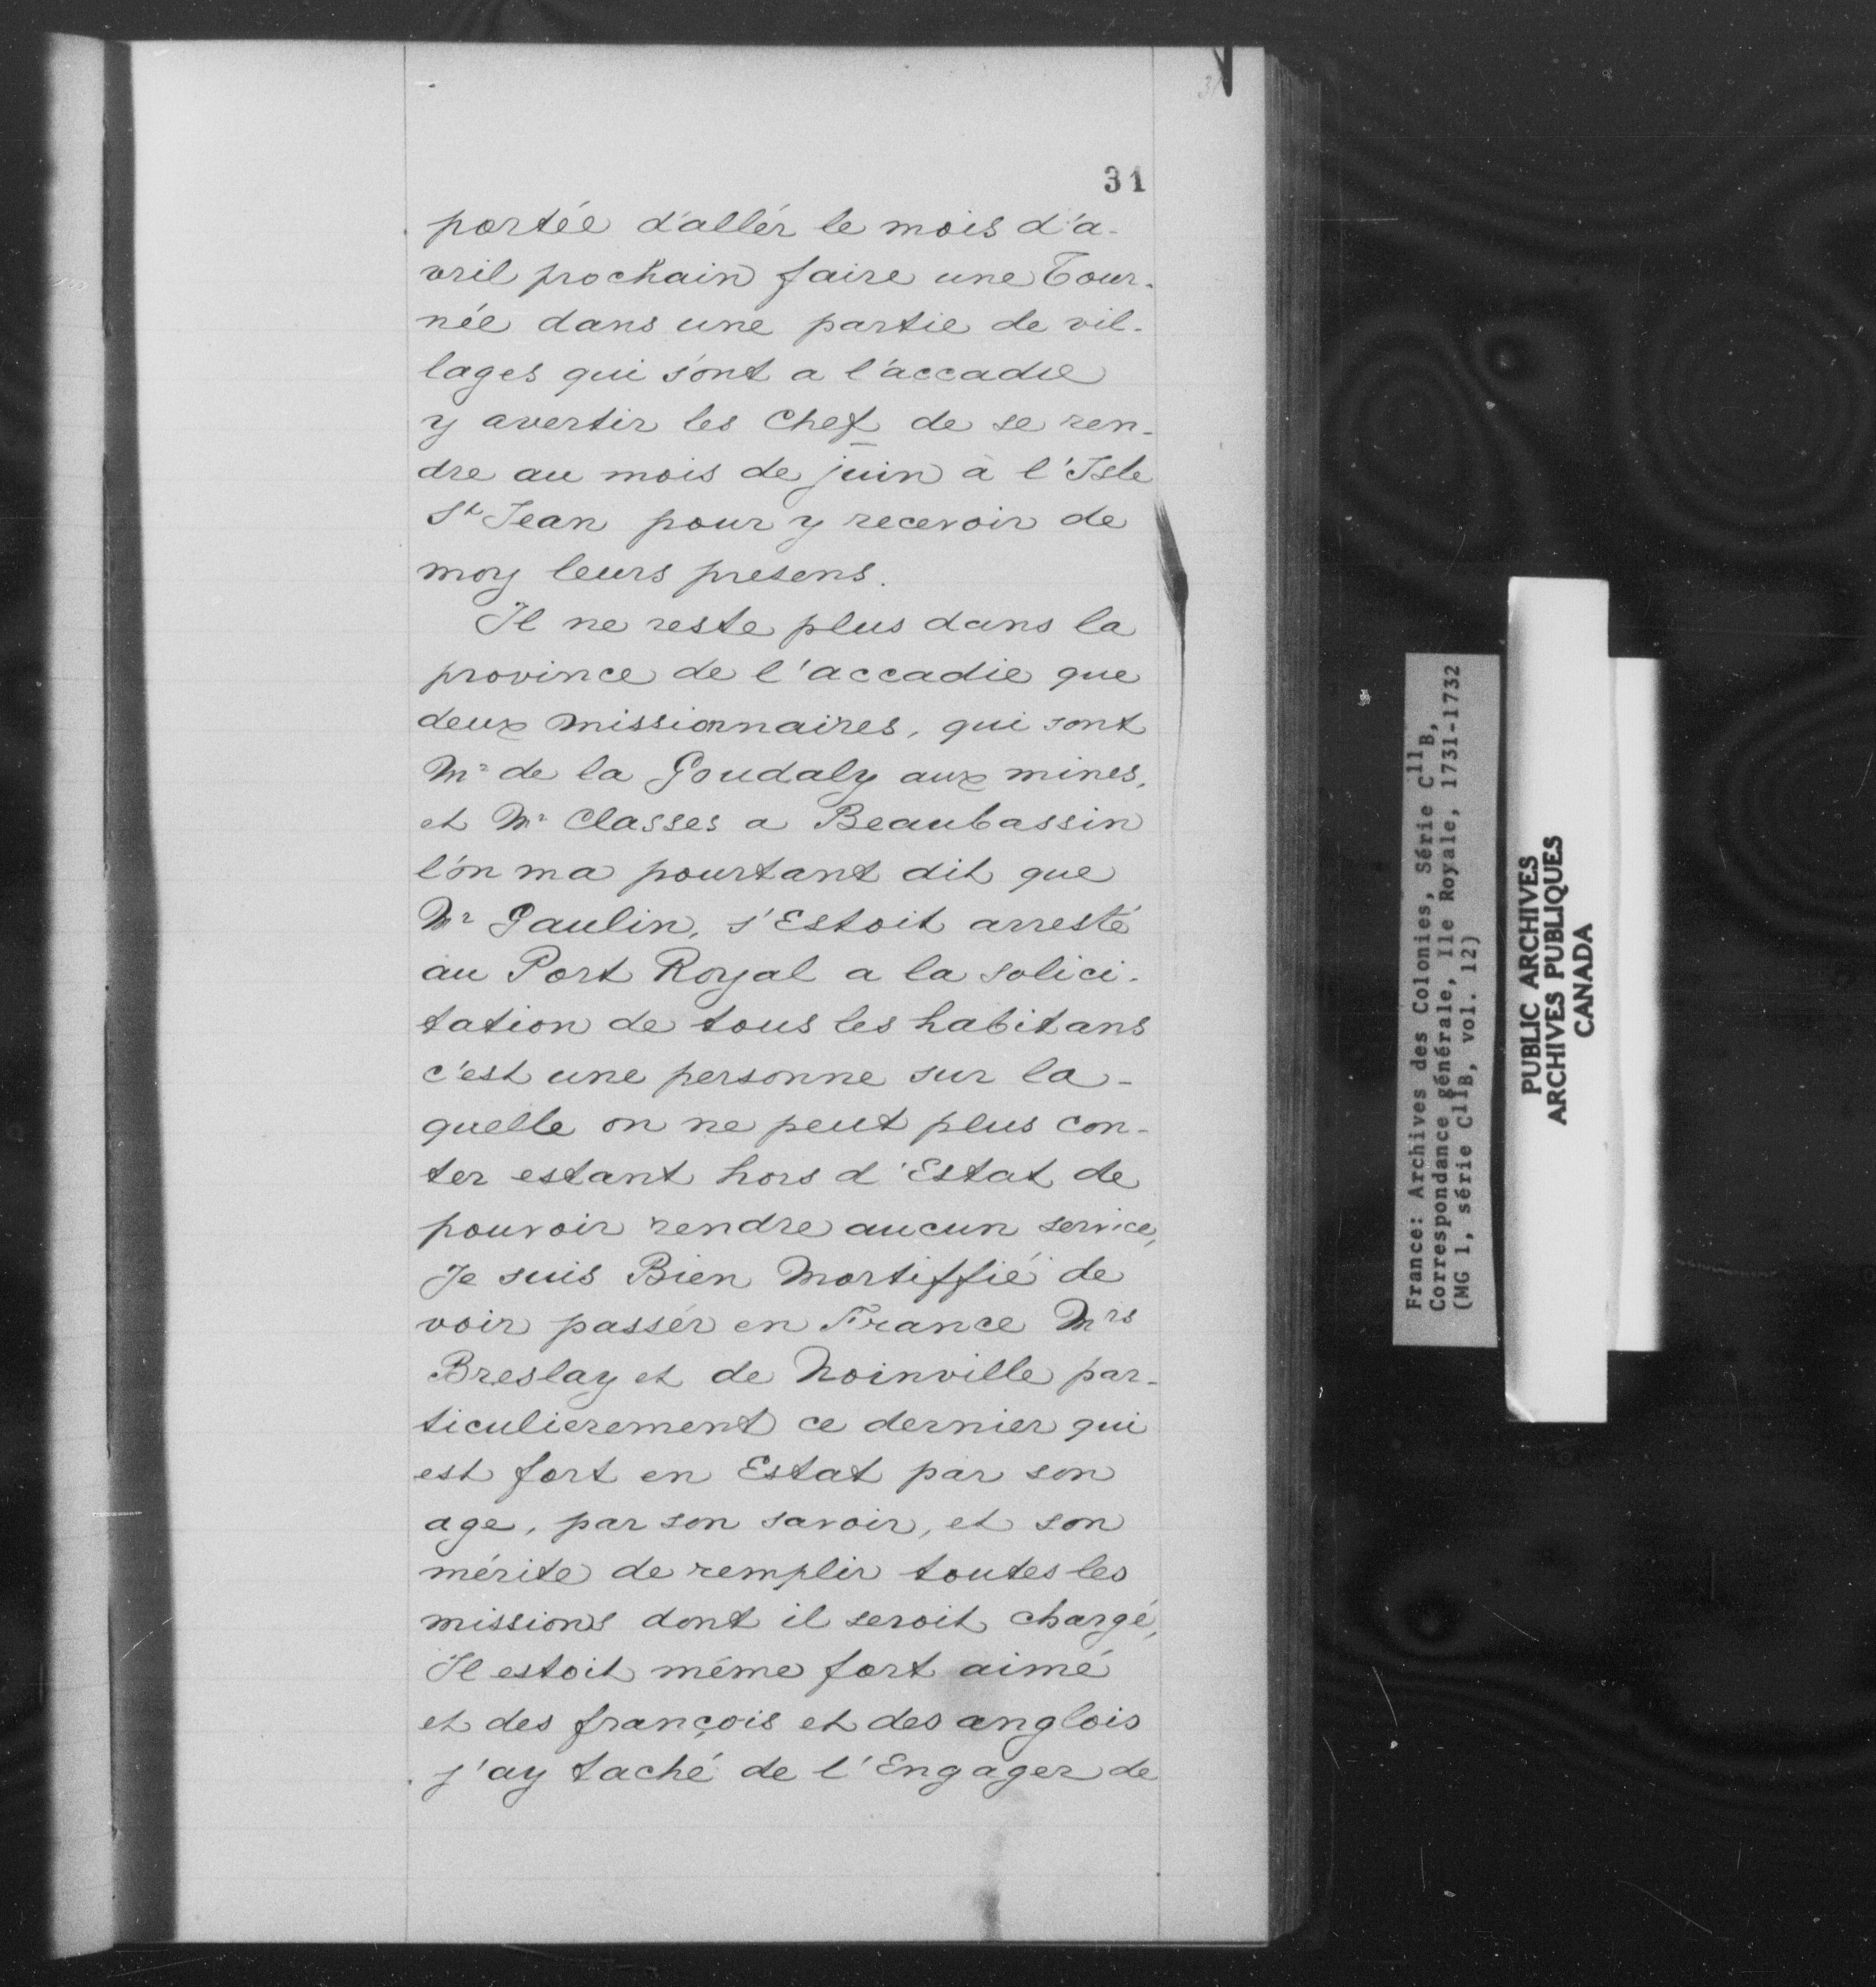 31
portée d'allér le mois d'a-
vril prochain faire une Tour-
née dans une partie de vil-
lages qui s'ont a l'accadie
y avertir les Chef de se ren-
dre au mois de juin à l'Isle
St Jean pour y recevoir de
moy leurs presens.
Il ne reste plus dans la
province de l'accadie que
deux missionnaires, qui sont
Mr de la Goudaly aux mines,
et Mr Classes a Beaubassin
l'on ma pourtant dit que
Mr Gaulin, s'Estoit arresté
au Port Royal a la solici-
tation de tous les habitans
c'est une personne sur la-
quelle on ne peut plus con-
ter estant hors d'Estat de
pouvoir rendre aucun service,
Je suis Bien Mortiffié de
voir passér en France Mrs
Breslay et de Noinville par-
ticulierement ce dernier qui
est fort en Estat par son
age, par son savoir, et son
mérite de remplir toutes les
missions dont il seroit chargé,
Il estoit même fort aimé
et des françois et des anglois
j'ay taché de l'Engager de
France: Archives des Colonies, Série C11B,
Correspondance générale, Ile Royale, 1731-1732
(MG 1, série C11B, vol. 12)
PUBLIC ARCHIVES
ARCHIVES PUBLIQUES
CANADA